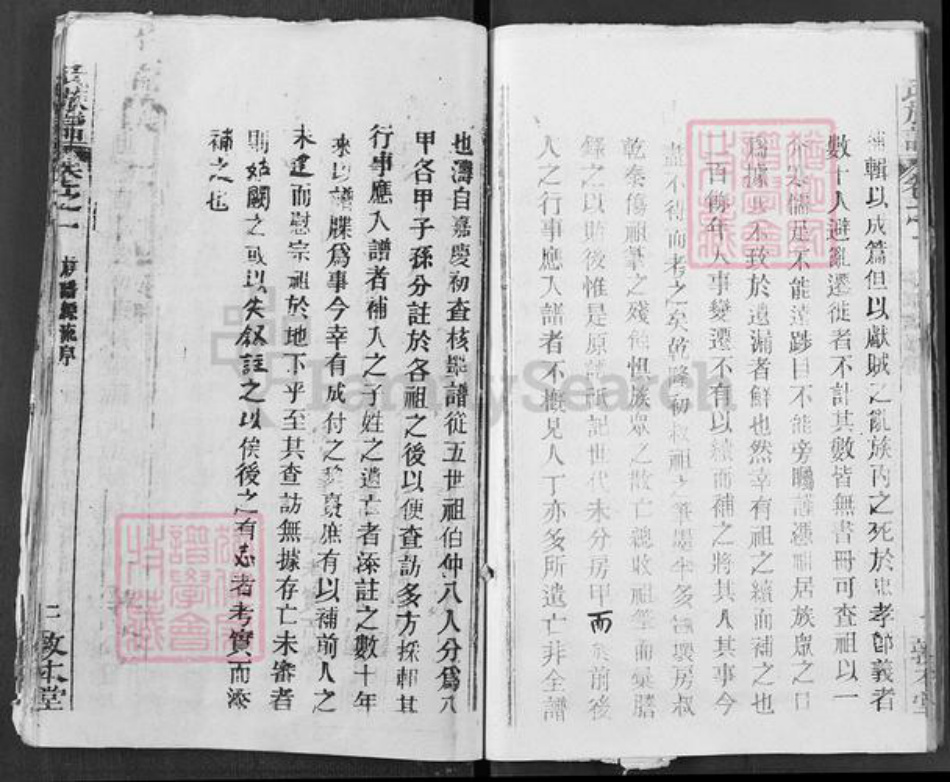 補輯以成篇但以獻賊之亂族內之死於忠孝節義者
數十人避亂遷徙者不計其數皆無書冊可查祖以一
介寒儒足不能遠跡目不能旁矚謹憑祖居族眾之口
為據其不致於遺漏者鮮也然幸有祖之續而補之也
百餘年人事變遷不有以續而補之將其人其事今
盡不得而考之矣乾隆初叔祖之筆墨半多 壞房叔
乾奏傷祖筆之殘 怛族眾之散亡總收祖筆而彙謄
錄之以貽後惟是原譜所記世代未分房甲而 前後
人之行事應入譜者不概見人丁亦多所遺亡非全譜
也濤自嘉慶初查核舉譜從五世祖伯仲八人分為八
甲各甲子孫分註於各祖之後以便查訪多方採輯其
行事應入譜者補入之子姓之遺亡者添註之數十年
來以譜牒為事今幸有成付之 庶有以補前人之
未逮而慰宗祖於地下乎至其查訪無據存亡未審者
則姑闕之或以失敘註之以俟後之有志者考實而添
補之也
氏族譜 卷之一
氏族譜 卷之一 源流序
二 敦本堂
一 敦本堂
FamilySearch